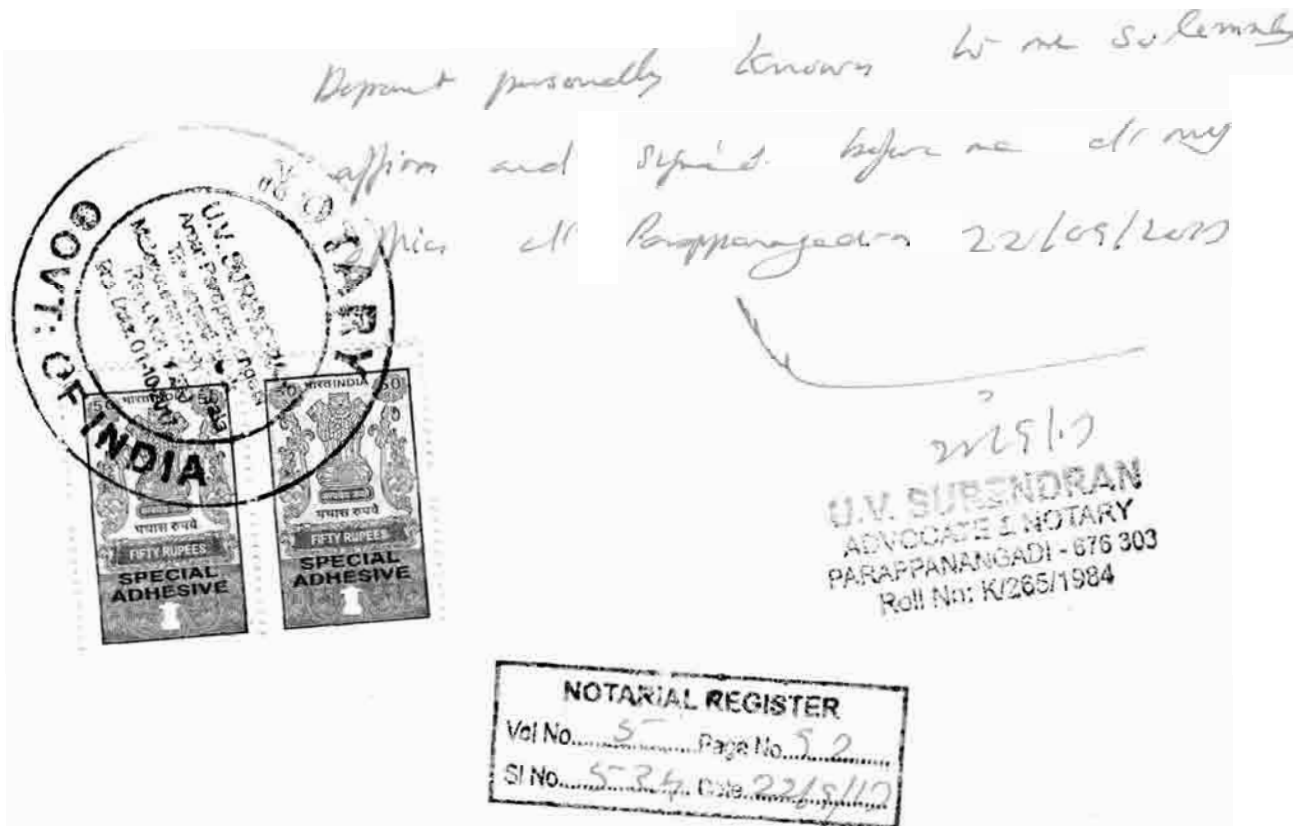 Deponent personally known to me solemnly
affirm and signed before me at my
office at Parappanangadi 22/09/20
NOTARY
GOVT: OF INDIA
U.V. SUREN
50 भारत INDIA 50
पचास रुपये
FIFTY RUPEES
SPECIAL
ADHESIVE
1
50 भारत INDIA 50
पचास रुपये
FIFTY RUPEES
SPECIAL
ADHESIVE
1
U.V. SURENDRAN
ADVOCATE & NOTARY
PARAPPANANGADI - 676 303
Roll No: K/265/1984
NOTARIAL REGISTER
Vol No. 5 Page No. 52
Sl No. 534 Date 22/9/17